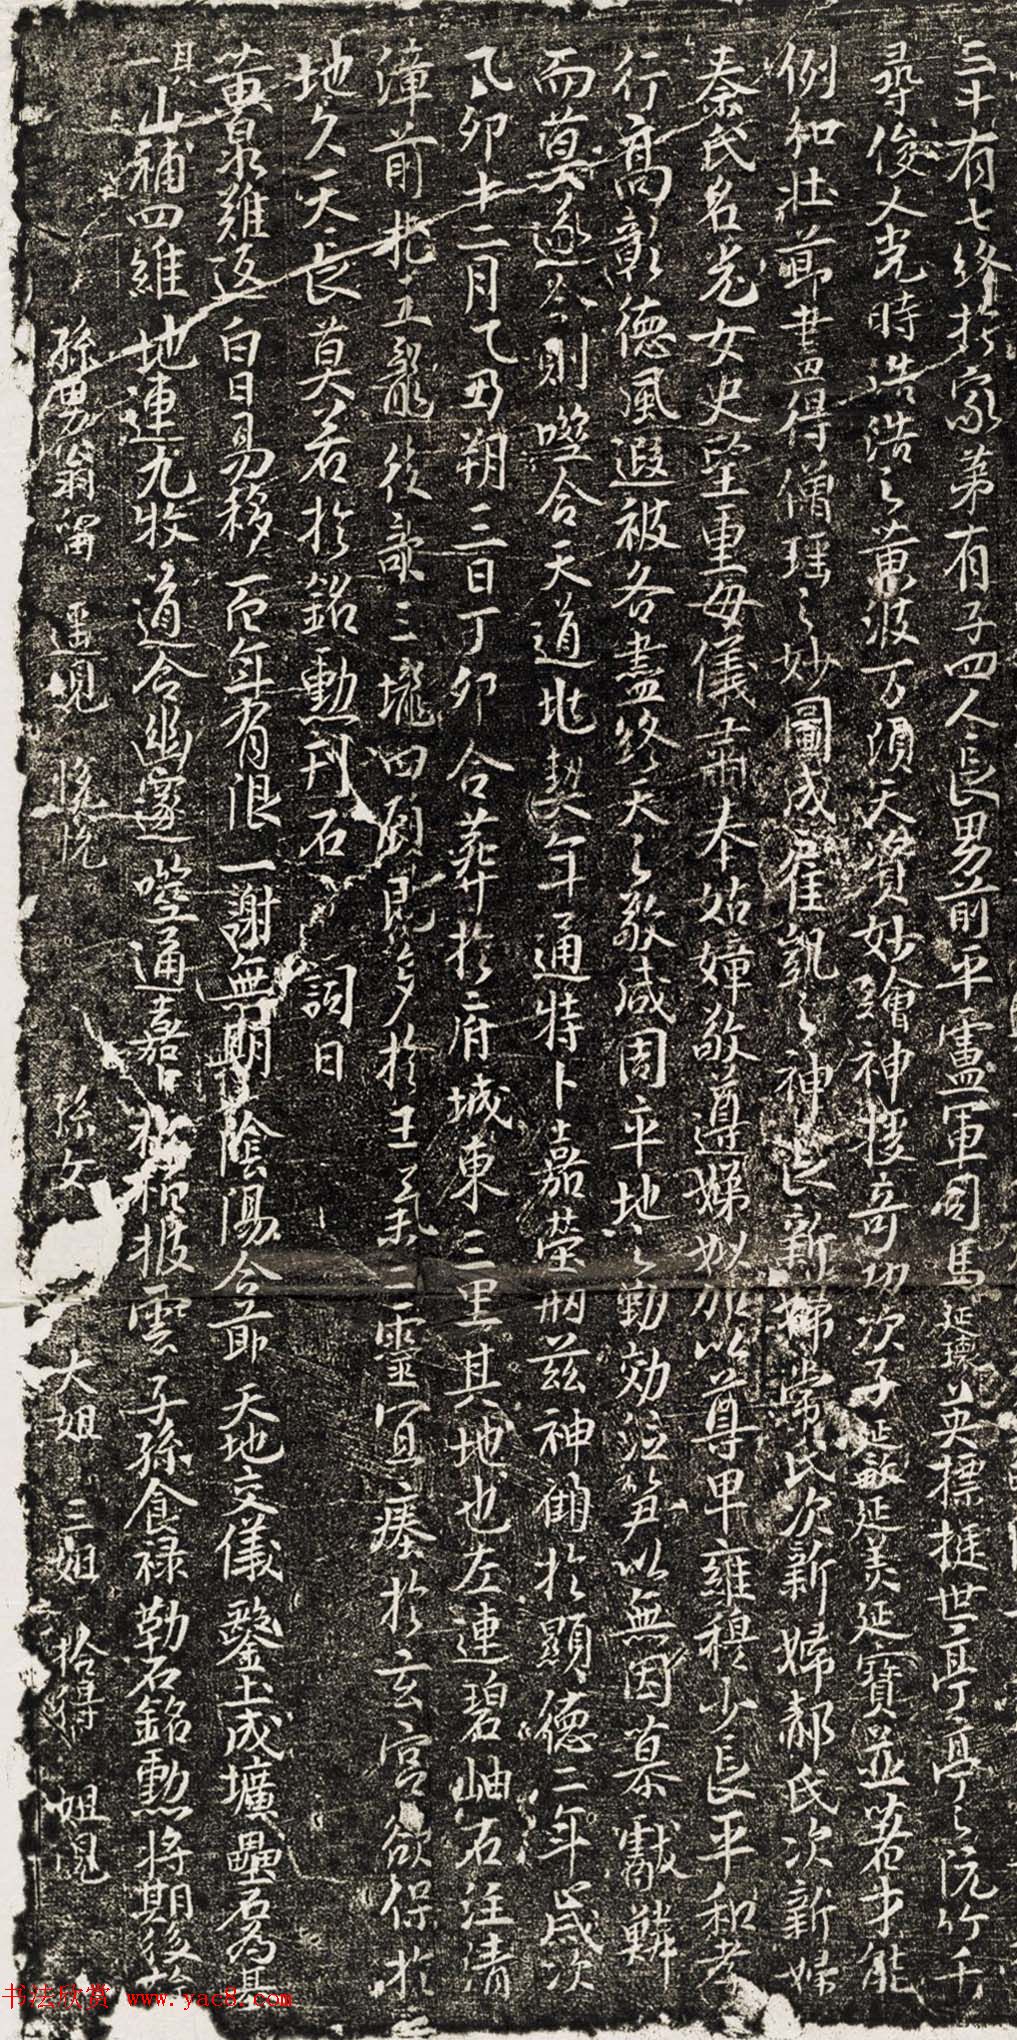 三十有七終於家第有子四人長男前平盧軍司馬延瓌英標挺世亭亭之阮竹千
尋俊乂光時浩浩之黃陂万頃天資妙繪神授奇功次子延嗣延美延寶並著才能
例知壯節畫得僧瑤之妙圖成雇凱之神長新婦常氏次新婦郝氏次新婦
秦氏名光女史望重母儀肅奉姑嫜敬遵娣姒加以尊卑雍穆少長平和孝
行高彰德風遐被各盡終天之敬咸固平地之勤効泣笋以無因慕獻鱗
而莫遂今則噬合天道兆契年通特卜嘉塋刱兹神廟於顯德二年歲次
乙卯十二月乙丑朔三日丁卯 合葬於府城東三里其地也左連碧岫右注清
漳前枕五龍後歌三壠四顧既多於王氣三靈宜瘞於玄宮欲保於
地久天長莫若於銘勳刊石 詞曰
黃泉難返 白日易移 百年有限 一謝無期 陰陽合節 天地交儀 鑿土成壙 壘石爲基
其一 山補四維 地連九牧 道合幽邃 噬通嘉卜 松檟披雲 子孫食禄 勒石銘勳 將期後
孫男翁留 堊児 悅悅 孫女 大姐 三姐 拾得 姐児
书法欣赏 www.yac8.com